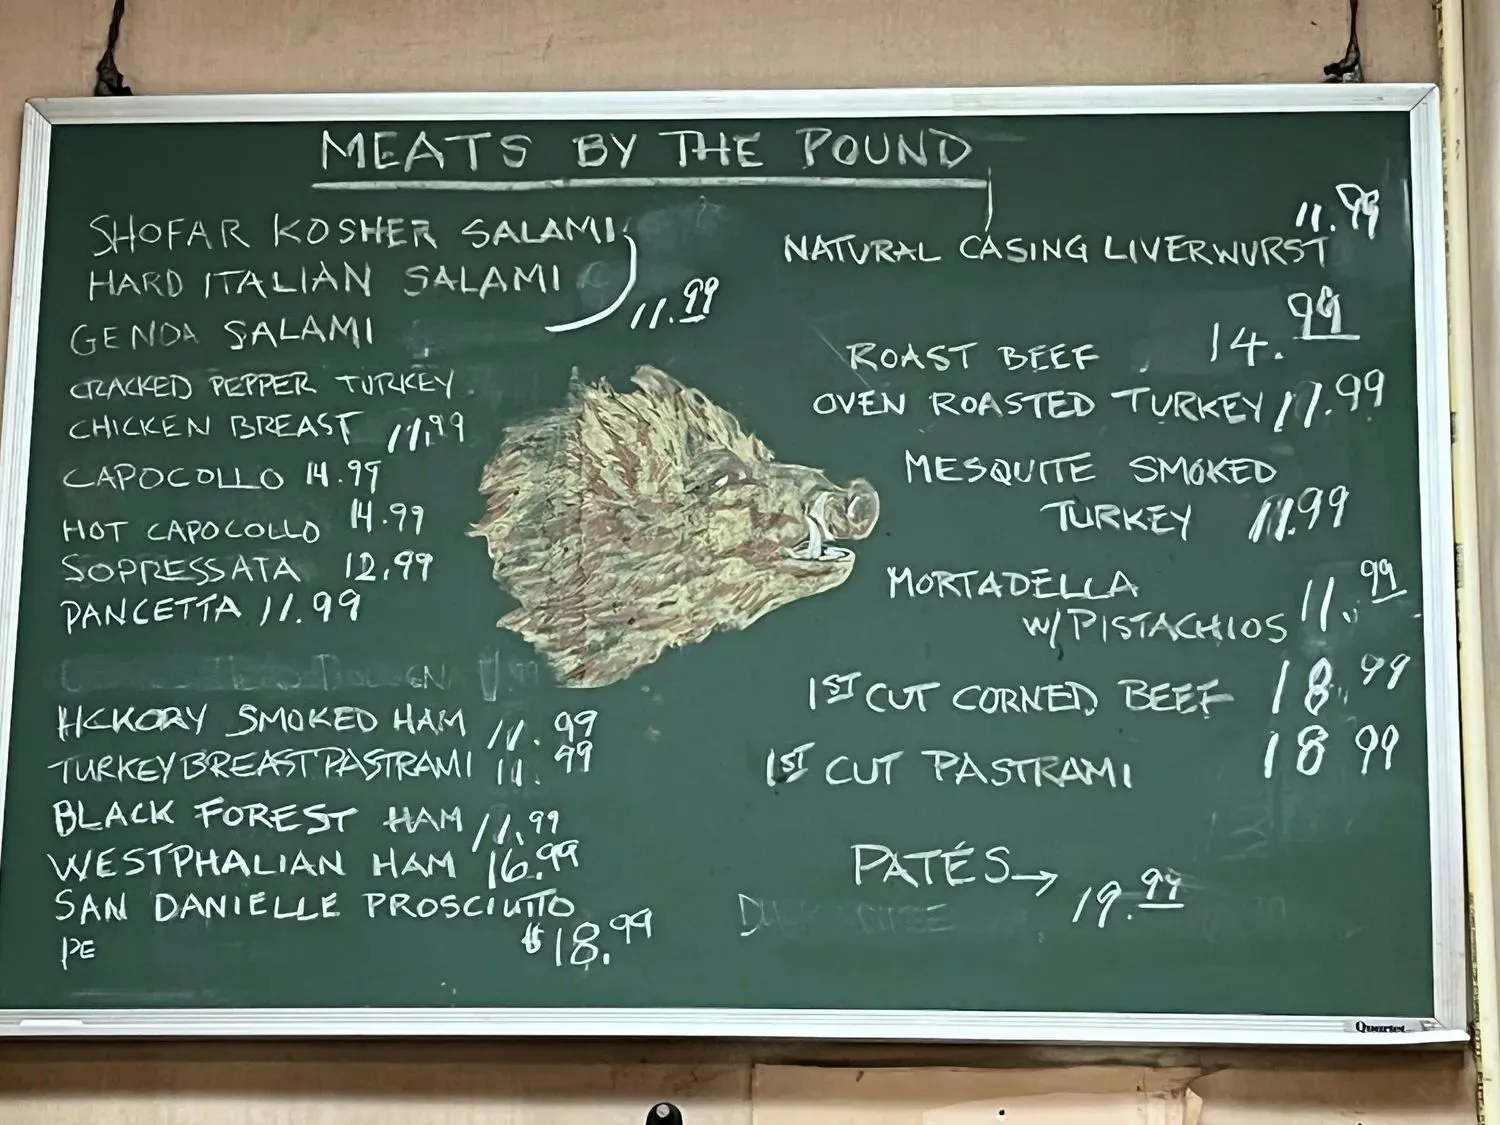 MEATS BY THE POUND
SHOFAR KOSHER SALAMI
HARD ITALIAN SALAMI
GENOA SALAMI
11.99
CRACKED PEPPER TURKEY
CHICKEN BREAST 11.99
CAPOCOLLO 14.99
HOT CAPOCOLLO 14.99
SOPRESSATA 12.99
PANCETTA 11.99
HCKORY SMOKED HAM 11.99
TURKEY BREAST PASTRAMI 11.99
BLACK FOREST HAM 11.99
WESTPHALIAN HAM 16.99
SAN DANIELLE PROSCIUTTO
PE $18.99
NATURAL CASING LIVERWURST 11.99
ROAST BEEF 14.99
OVEN ROASTED TURKEY 11.99
MESQUITE SMOKED
TURKEY 11.99
MORTADELLA
W/PISTACHIOS 11.99
1ST CUT CORNED BEEF 18.99
1ST CUT PASTRAMI 18 99
PATÉS→ 19.99
Quartet